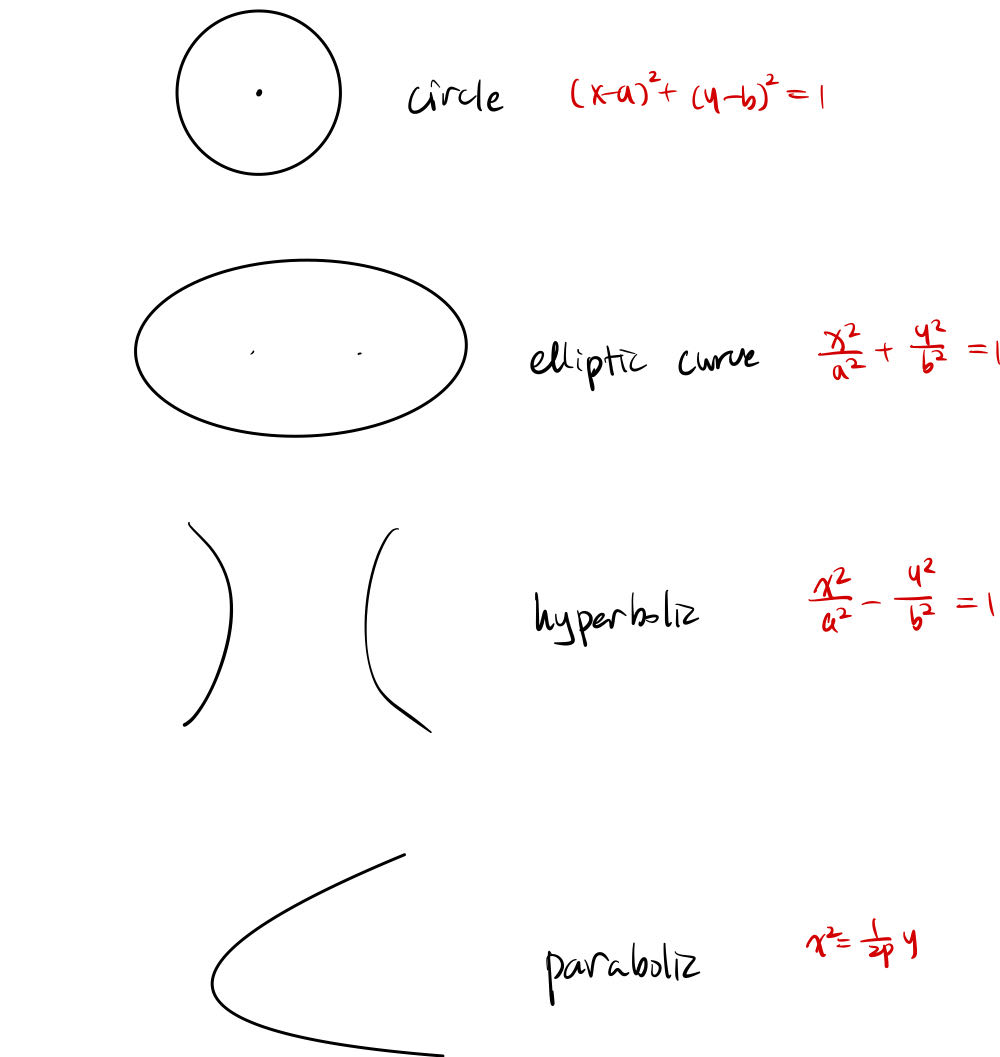 circle (x-a)²+ (y-b)² = 1
elliptic curve x²/a² + y²/b² = 1
hyperbolic x²/a² - y²/b² = 1
parabolic x² = 1/2p y